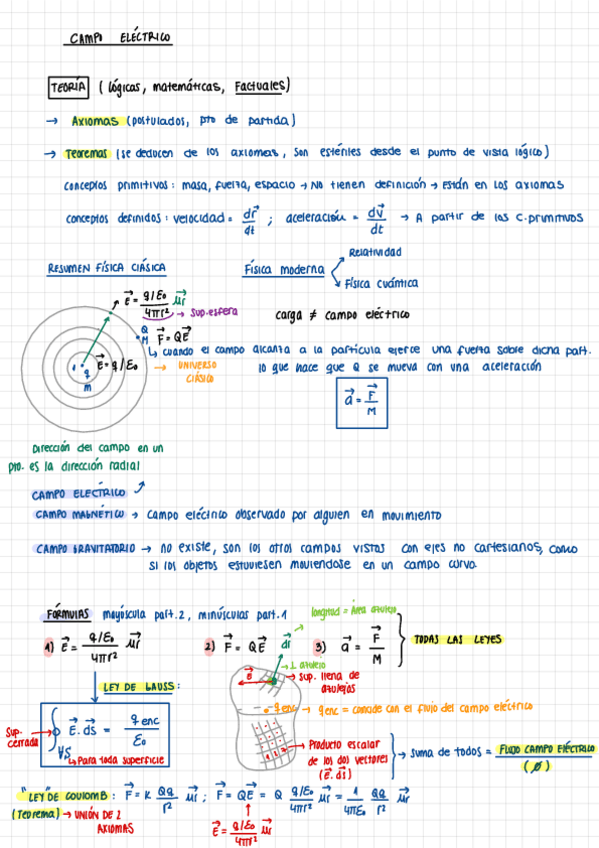 CAMPO ELÉCTRICO
TEORÍA (lógicas, matemáticas, Factuales)
→ Axiomas (postulados, pto de partida)
→ Teoremas (se deducen de los axiomas, son estériles desde el punto de vista lógico)
conceptos primitivos: masa, fuerza, espacio → No tienen definición → Están en los axiomas
conceptos definidos: velocidad = dr⃗/dt ; aceleración = dv⃗/dt → A partir de los C.primitivos
RESUMEN FÍSICA CLÁSICA
Física moderna
Relatividad
Física cuántica
E⃗ = q/ε₀ / 4πr² u⃗r
→ sup.esfera
carga ≠ campo eléctrico
Q
M
F⃗ = QE⃗
↳ cuando el campo alcanza a la partícula ejerce una fuerza sobre dicha part.
lo que hace que Q se mueva con una aceleración
E⃗ = q/ε₀
q
m
→ UNIVERSO
CLÁSICO
a⃗ = F⃗/M
Dirección del campo en un
pto. es la dirección radial
CAMPO ELÉCTRICO
CAMPO MAGNÉTICO → campo eléctrico observado por alguien en movimiento
CAMPO GRAVITATORIO → no existe, son los otros campos vistos con ejes no cartesianos, como
si los objetos estuviesen moviendose en un campo curvo.
FÓRMULAS mayúscula part.2, minúsculas part.1
longitud = Área azulejo
1) E⃗ = q/ε₀ / 4πr² u⃗r
2) F⃗ = QE⃗
ds⃗
3) a⃗ = F⃗/M
TODAS LAS LEYES
⊥ azulejo
E⃗
→ sup. llena de
azulejos
LEY DE GAUSS:
Sup.
cerrada
∮ E⃗.ds⃗ = q enc / ε₀
∀S
↳ Para toda superficie
q enc → qenc = coincide con el flujo del campo eléctrico
Producto escalar
de los dos vectores
(E⃗.ds⃗)
→ suma de todos = FLUJO CAMPO ELÉCTRICO
(∅)
"LEY" DE COULOMB: F⃗ = K Qq/r² u⃗r ; F⃗ = QE⃗ = Q q/ε₀ / 4πr² u⃗r = 1/4πε₀ Qq/r² u⃗r
(Teorema) → UNIÓN DE 2
AXIOMAS
E⃗ = q/ε₀ / 4πr² u⃗r